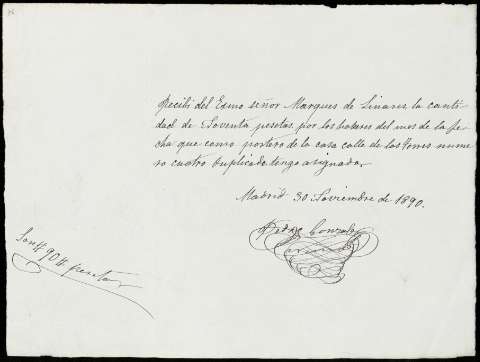 Recibí del Exmo señor Marques de Linares, la canti-
dad de Noventa pesetas, por los haberes del mes de la fe-
cha que como portero de la casa calle de las nume-
ro cuatro duplicado tengo asignado.
Madrid 30 Noviembre de 1890.
Pedro Gonzalez
Son # 90 # pesetas